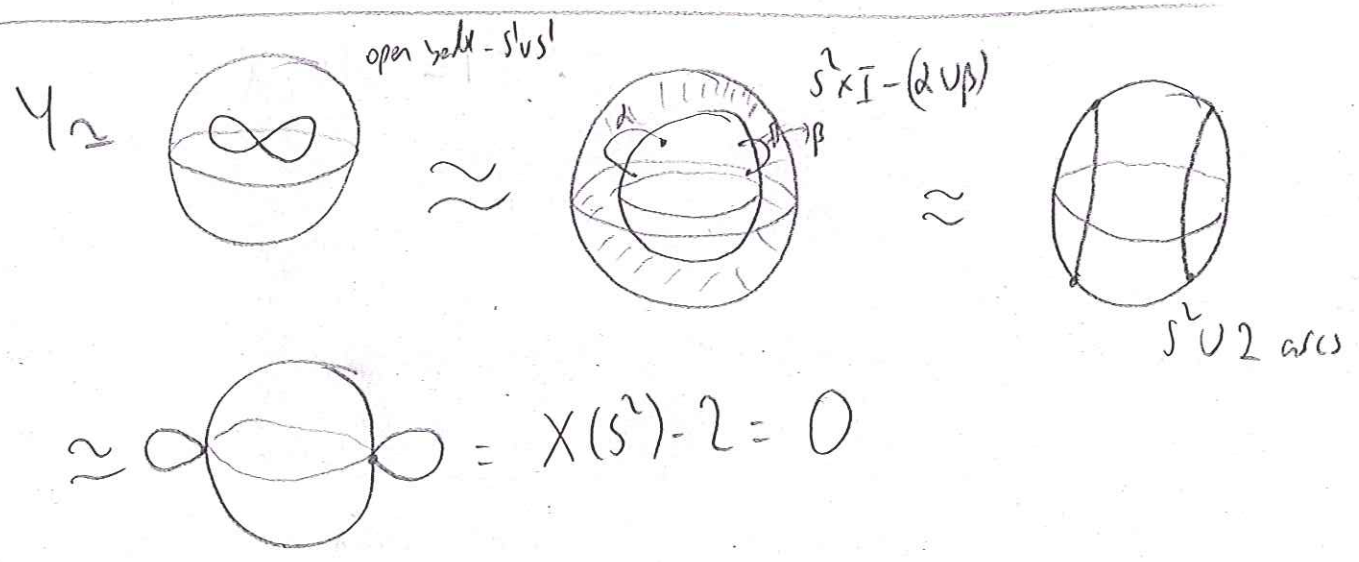 open ball - S¹∨S¹
Y ≃
≃
S²×I-(α∪β)
α
β
≃
S²∪2 arcs
≃ = χ(S²)-2=0